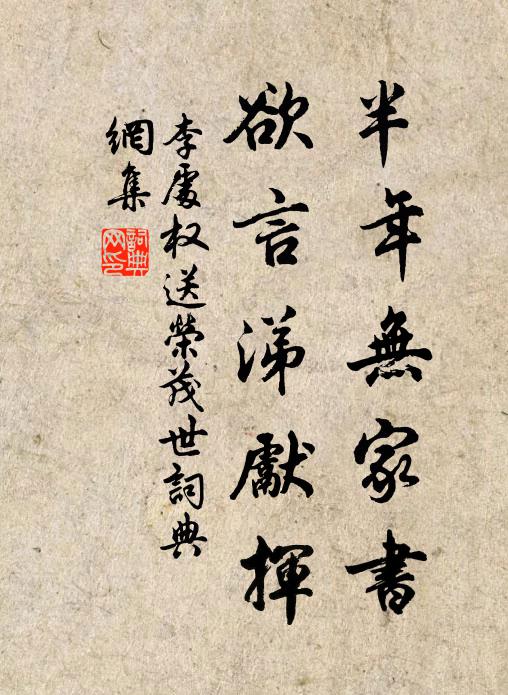 半年無家書
欲言涕獻揮
李處权送榮茂世詞典
網集
詞典網印